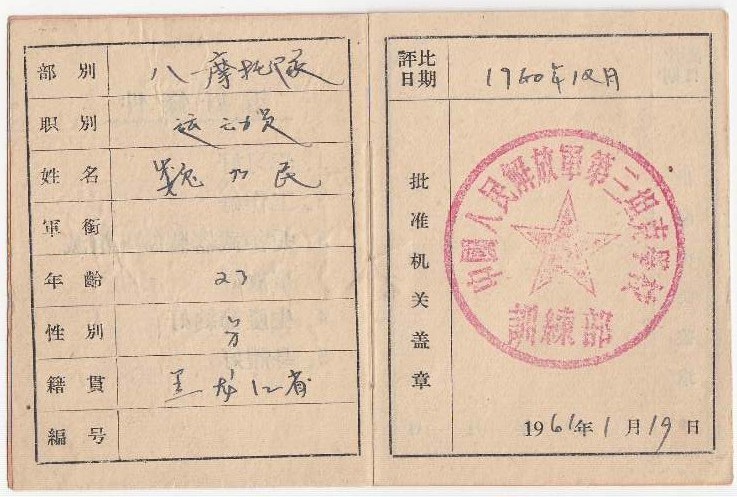 部別 八一摩托队
职別 运动员
姓名 魏加民
軍銜
年齡 23
性別 男
籍貫 黑龙江省
編号
評比日期 1960年12月
批准机关盖章
中國人民解放軍第三坦克學校
訓練部
1961年1月19日